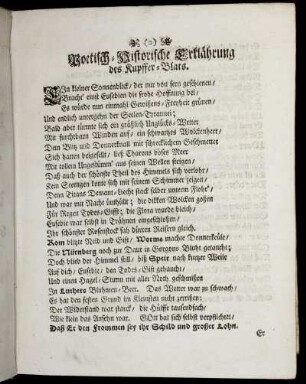 (o)
Poetisch-Historische Erklährung
des Kupffer-Blats.
EIn kleiner Sonnenblick, der mir von fern geschienen/
Bracht' einst Eusebien die frohe Hoffnung bei/
Es würde nun einmahl Gewissens-Freyheit grünen/
Und endlich untergehn der Seelen-Tyrannei;
Bald aber türmte sich ein gräßlich Unglücks-Wetter
Mit furchtbahren Winden auf/ ein schwartzes Wolckenheer/
Dem Blitz und Donnerknall mit schrecklichem Geschmetter
Sich hatten beigesellt/ ließ Charons böses Meer
Mit tollem Ungestümm' aus seinen Wellen steigen/
Daß auch der schönste Theil des Himmels sich verlohr/
Kein Sternigen konte sich mit seinem Schimmer zeigen/
Denn Titans Demant-Liecht stack selbst in einem Flohr'
Und war mit Nacht ümhüllt; die dikken Wolcken gossen
Für Regen Todes-Gifft; die Flora wurde bleich/
Eusebie war selbst in Thränen eingeschlossen/
Ihr schönster Rosenstock sah dürren Reisern gleich.
Rom blitzte Neid und Gift/ Worms machte Donnerkeile/
Die Nürnberg noch zur Zeit in Gnaden
Doch blieb der Himmel still/ biß Speir nach kurtzer Weile
Auf dich/ Eusebie/ den Todes-Gifft gebraucht/
Und einen Hagel-Sturm mit aller Macht geschmissen
In Luthers Bluhmen-Bett. Das Wetter war zu schwach/
Es hat den festen Grund im kleinsten nicht zerrissen:
Der Widerstand war starck/ die Hülffe tausendfach/
Wie klein das Ansehn war. GOtt hat sich selbst verpflichtet/
Daß Er den Frommen sey ihr Schild und grosser Lohn.
Er